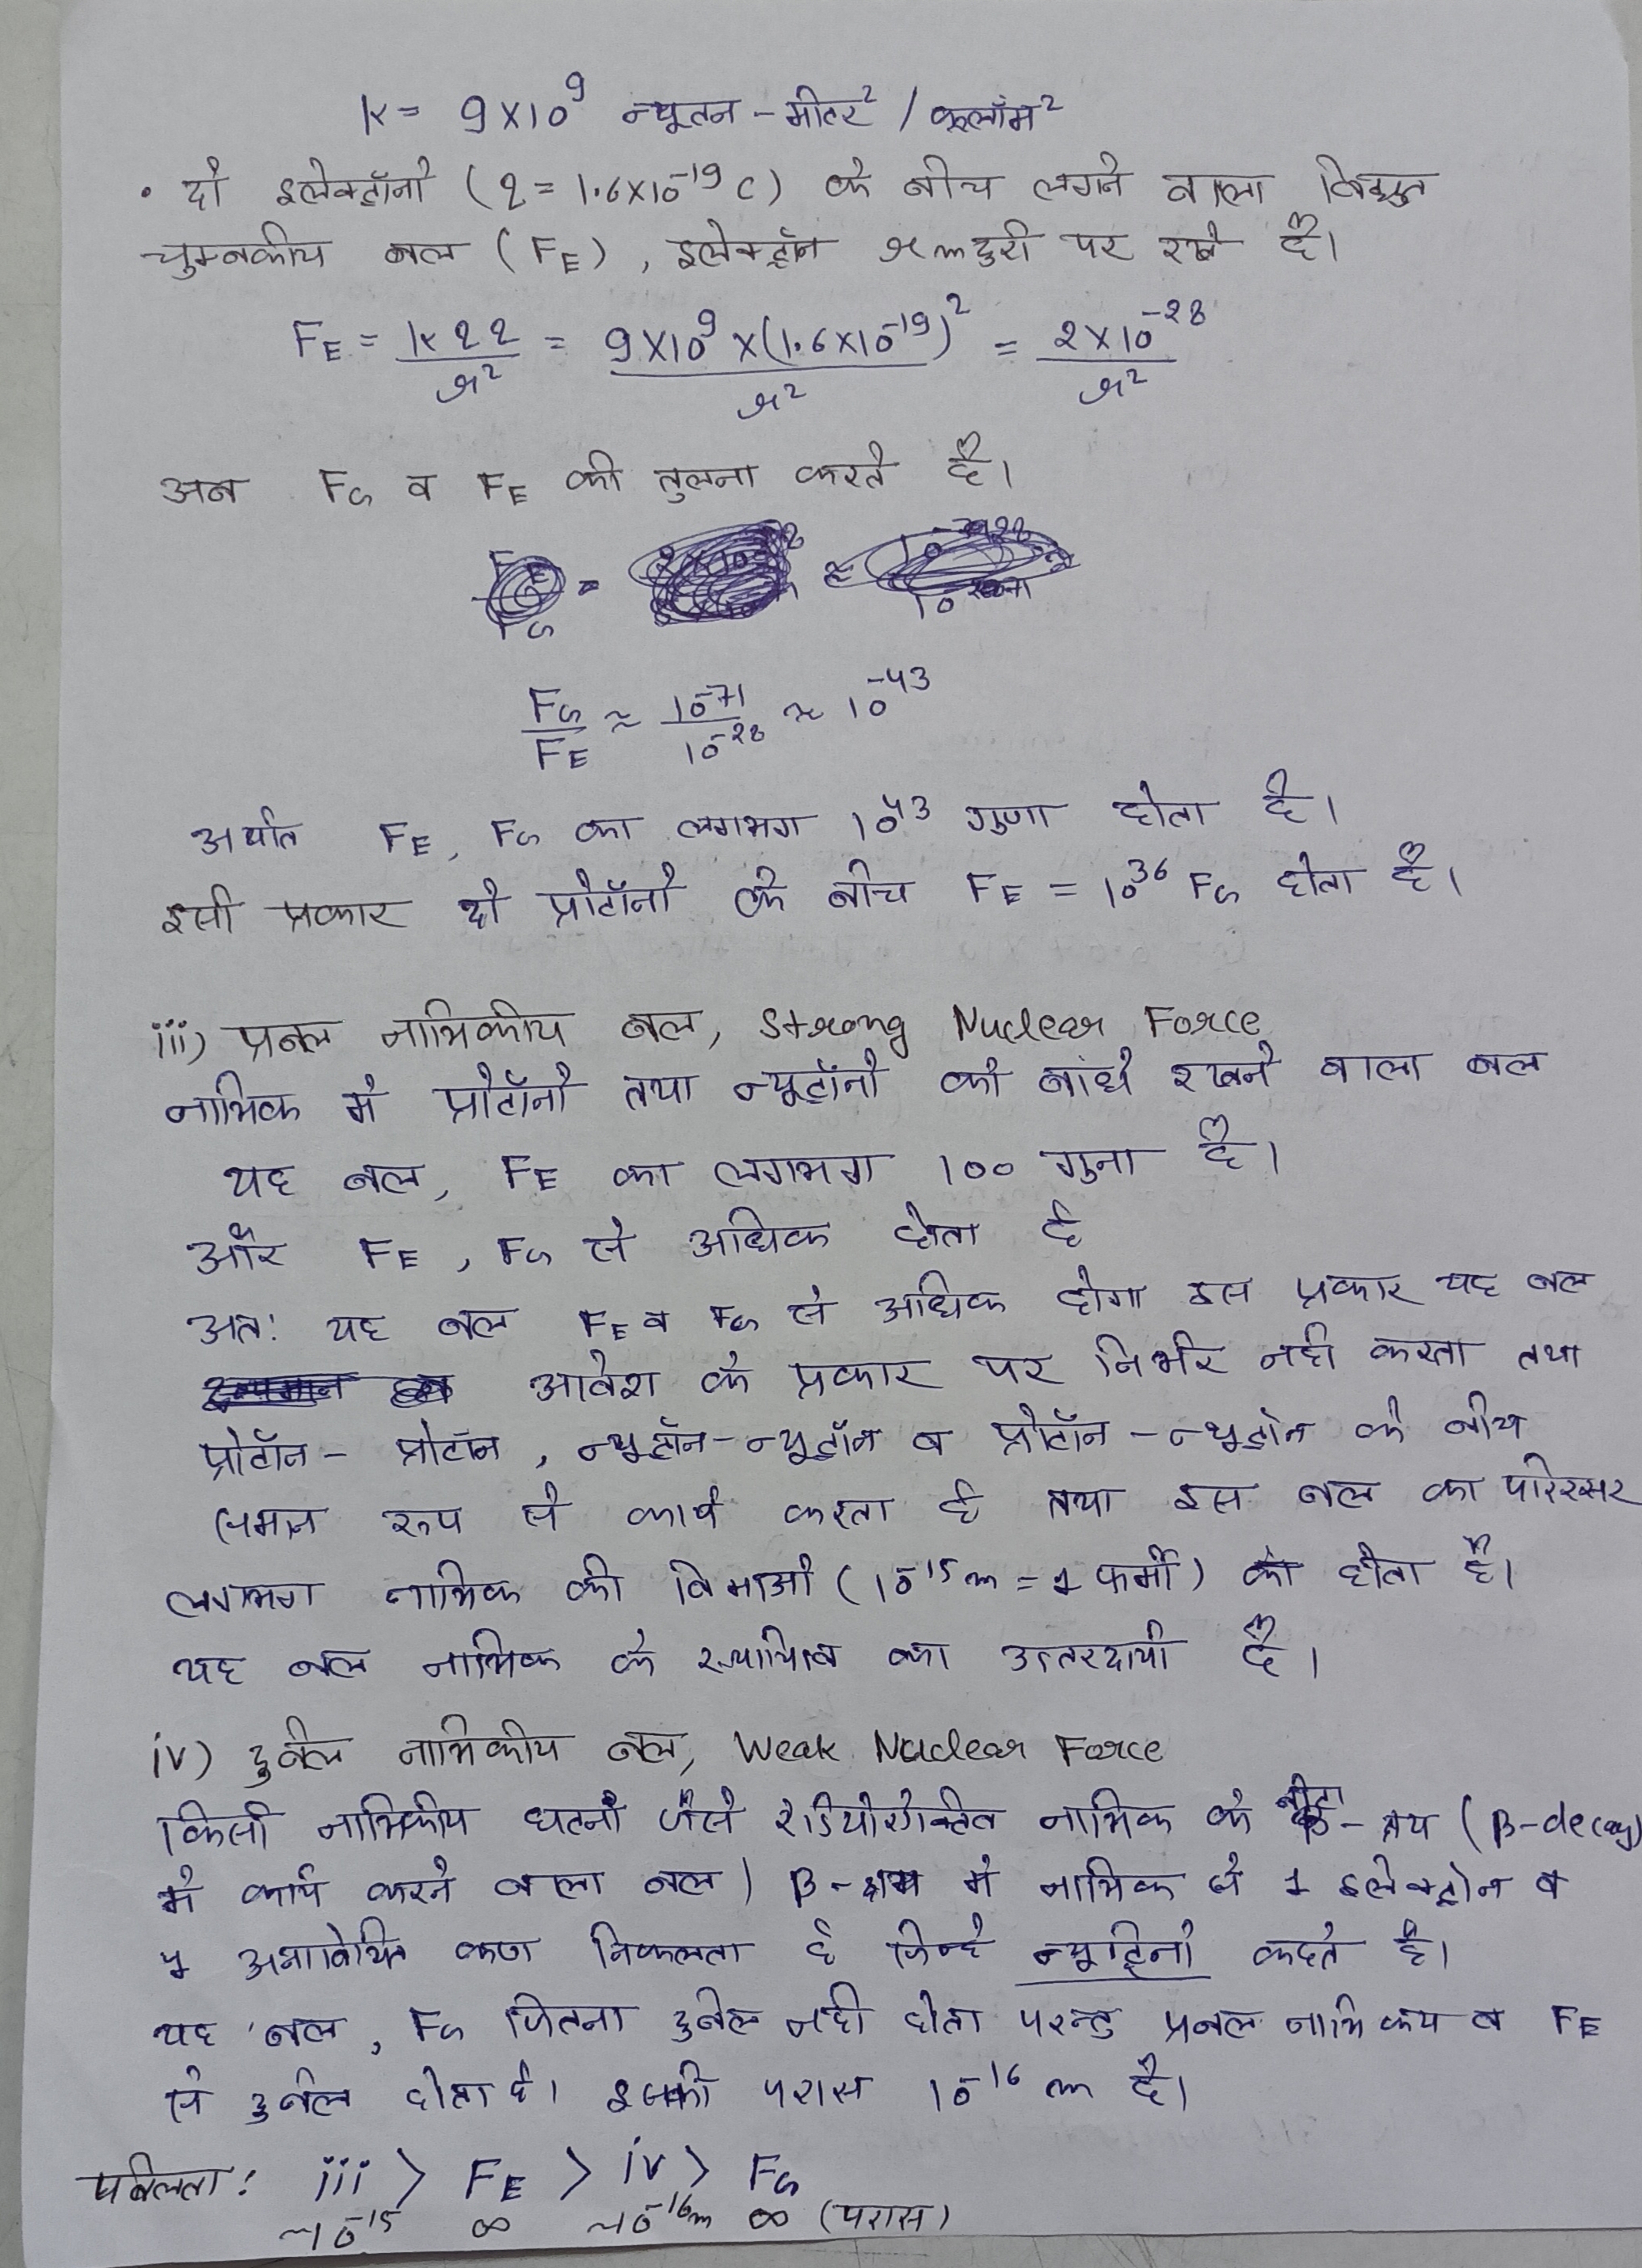 K = 9×10⁹ न्यूतन - मीटर² / कूलॉम²
• दो इलेक्ट्रॉनो (q = 1.6×10⁻¹⁹ C) के बीच लगने वाला विद्युत
चुम्बकीय बल (F_E), इलेक्ट्रॉन r m दुरी पर रखे है।
F_E = Kqq/r² = 9×10⁹×(1.6×10⁻¹⁹)²/r² = 2×10⁻²⁸/r²
अब F_G व F_E की तुलना करते है।
F_G/F_E ≈ 10⁻⁷¹/10⁻²⁸ ≈ 10⁻⁴³
अर्थात F_E, F_G का लगभग 10⁴³ गुणा होता है।
इसी प्रकार दो प्रोटॉनो के बीच F_E = 10³⁶ F_G होता है।
iii) प्रबल नाभिकीय बल, Strong Nuclear Force
नाभिक मे प्रोटॉनो तथा न्यूट्रॉनो को बांधे रखने वाला बल
यह बल, F_E का लगभग 100 गुना है।
और F_E, F_G से अधिक होता है
अत: यह बल F_E व F_G से अधिक होगा इस प्रकार यह बल
आवेश के प्रकार पर निर्भर नही करता तथा
प्रोटॉन - प्रोटॉन, न्यूट्रॉन - न्यूट्रॉन व प्रोटॉन - न्यूट्रॉन के बीच
समान रूप से कार्य करता है तथा इस बल का परिसर
लगभग नाभिक की विमाओ (10⁻¹⁵m = 1 फर्मी) का होता है।
यह बल नाभिक के स्थायित्व का उत्तरदायी है।
iv) दुर्बल नाभिकीय बल, Weak Nuclear Force
किसी नाभिकीय घटनो जैसे रेडियोऐक्टिव नाभिक के बीटा - क्षय (β-decay)
मे कार्य करने वाला बल। β-क्षय मे नाभिक से 1 इलेक्ट्रोन व
1 अनावेशित कण निकलता है जिन्हे न्यूट्रिनो कहते है।
यह बल, F_G जितना दुर्बल नही होता परन्तु प्रबल नाभिकय व F_E
से दुर्बल होता है। इसकी परास 10⁻¹⁶ m है।
प्रबलता: iii > F_E > iv > F_G
~10⁻¹⁵ ∞ ~10⁻¹⁶m ∞ (परास)